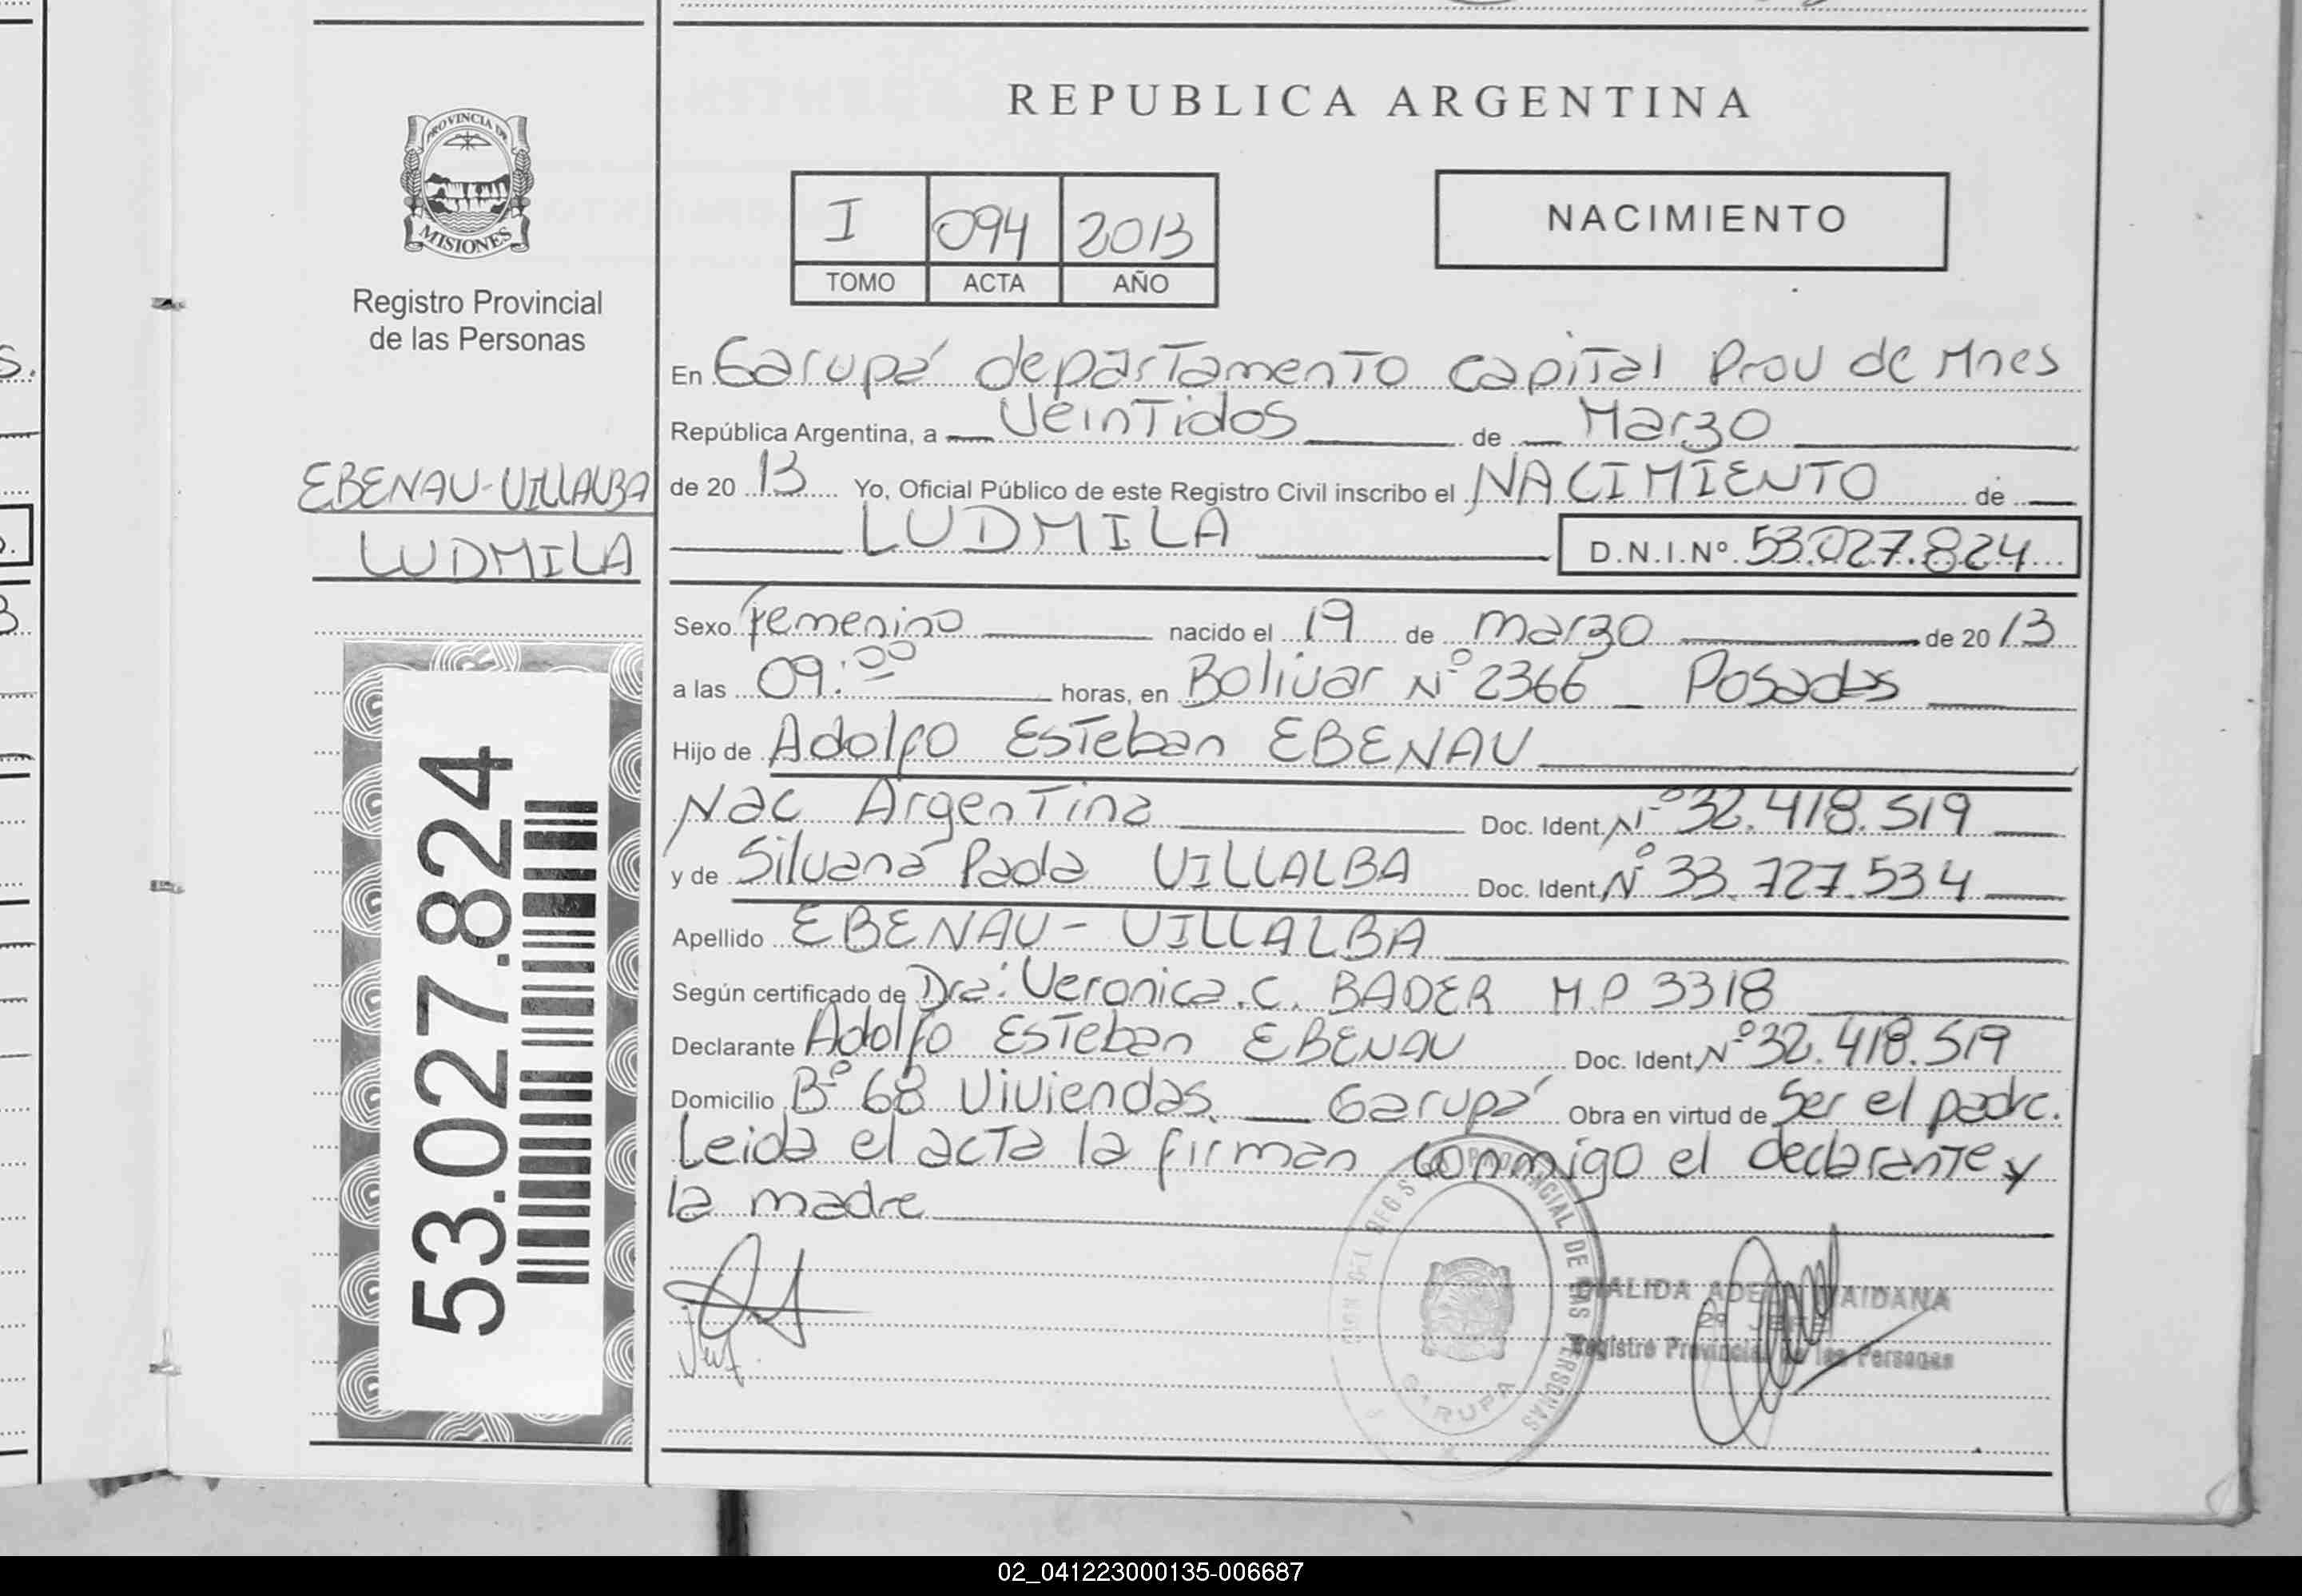 REPUBLICA ARGENTINA
PROVINCIA DE
MISIONES
Registro Provincial
de las Personas
EBENAU-VILLALBA
LUDMILA
53.027.824
I 094 2013
TOMO ACTA AÑO
NACIMIENTO
En Garupá departamento Capital Prov de Mnes
República Argentina, a Veintidos de Marzo
de 20 13 Yo, Oficial Público de este Registro Civil inscribo el NACIMIENTO de
LUDMILA D.N.I.Nº 53.027.824
Sexo Femenino nacido el 19 de marzo de 20 13
a las 09:00 horas, en Bolivar Nº 2366 Posadas
Hijo de Adolfo Esteban EBENAU
Nac Argentina Doc. Ident. Nº 32.418.519
y de Silvana Paola VILLALBA Doc. Ident. Nº 33.727.534
Apellido EBENAU - VILLALBA
Según certificado de Dra: Veronica.C. BADER M.P 3318
Declarante Adolfo Esteban EBENAU Doc. Ident. Nº 32.418.519
Domicilio Bº 68 Viviendas Garupá Obra en virtud de Ser el padre.
Leida el acta la firman conmigo el declarante y
la madre
PROVINCIAL DE LAS PERSONAS
GARUPA
MAIDANA
2º JEFE
Registro Provincial de las Personas
02_041223000135-006687